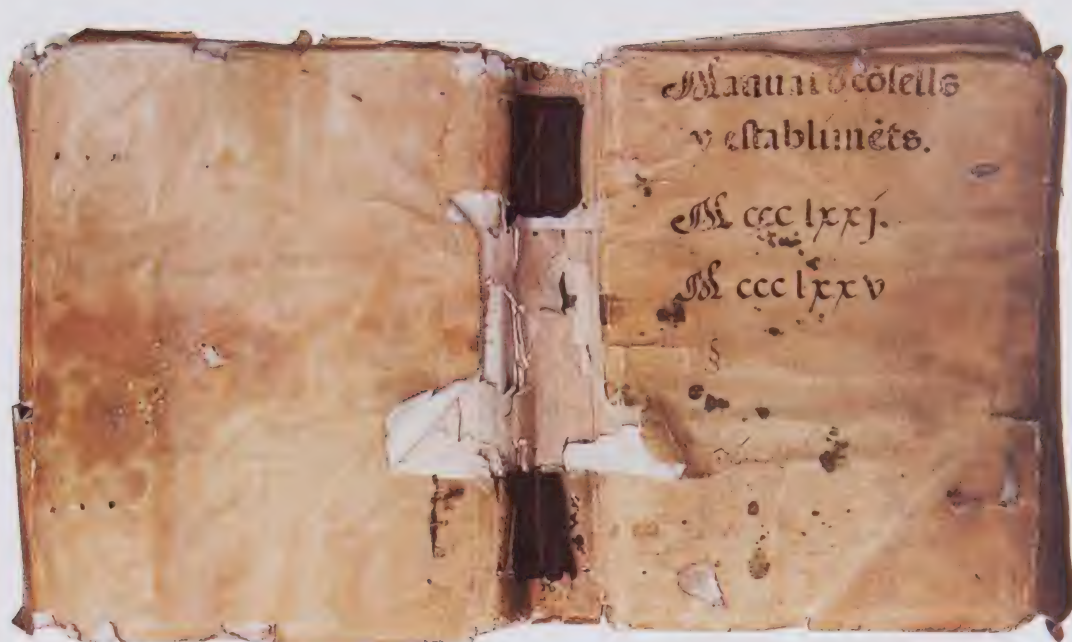 Manual d̓ cōsells
y establimēts.
M ccc lxxj.
M ccc lxxv
§